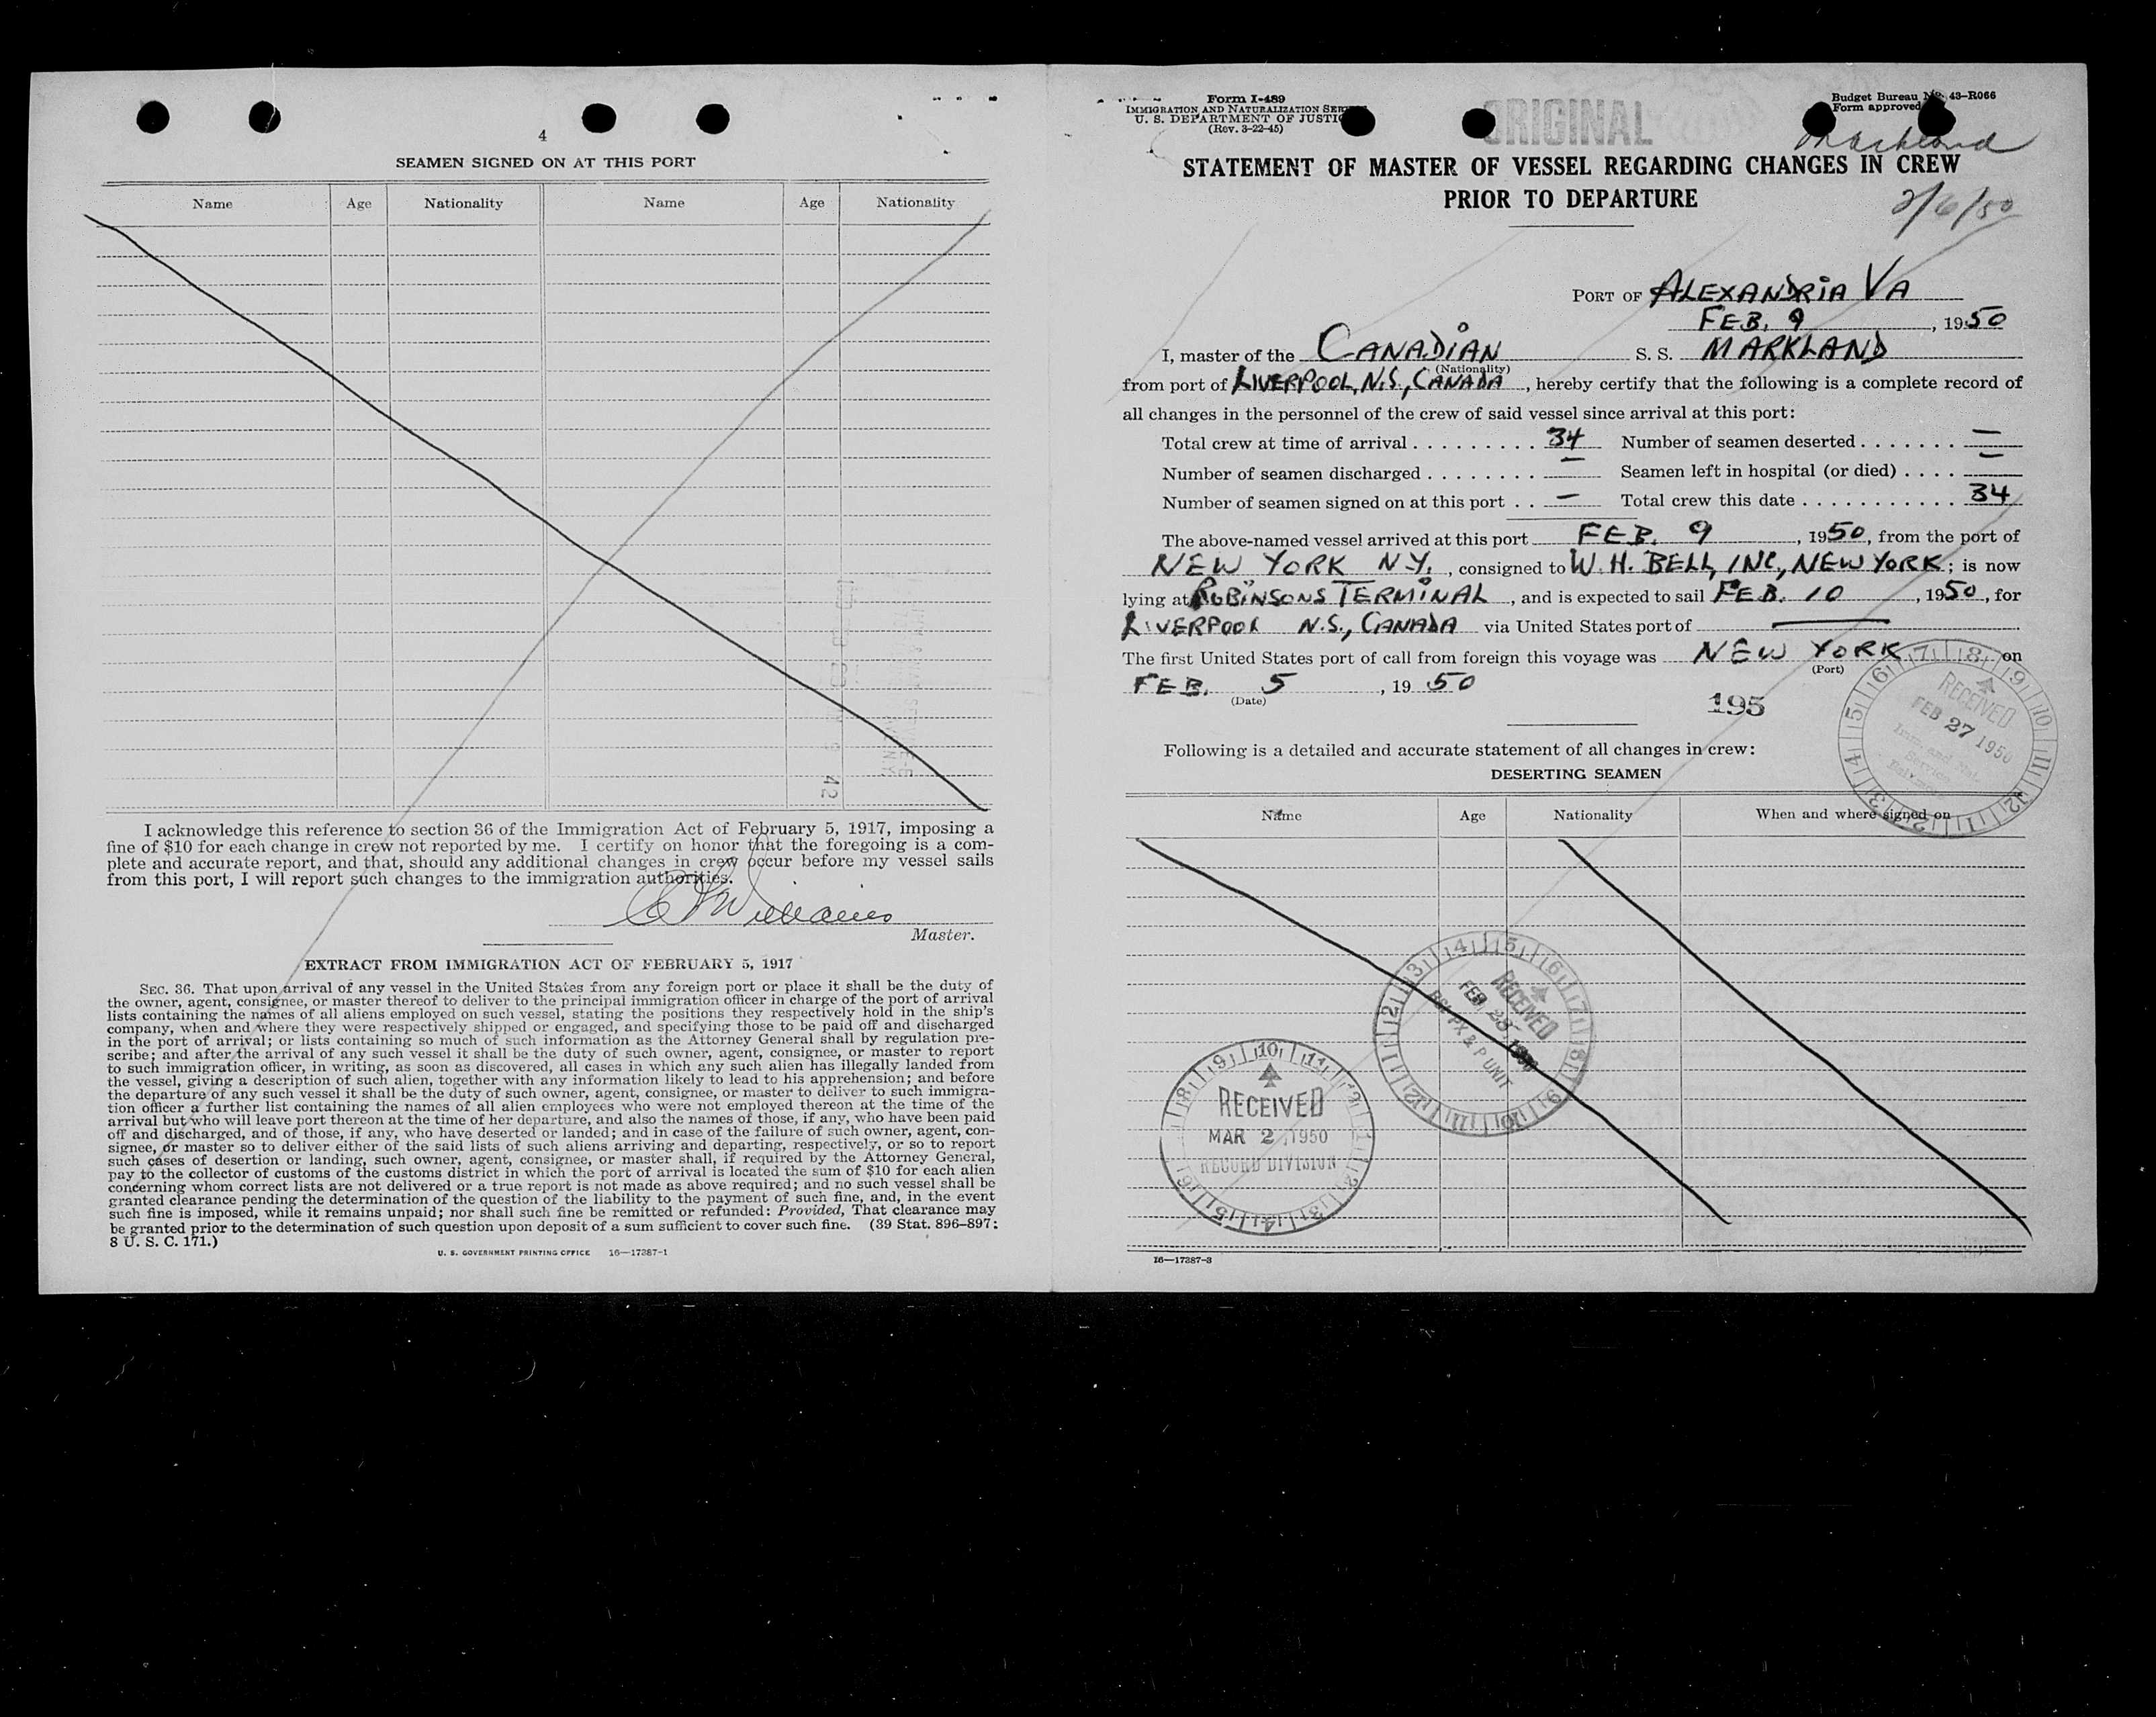 4
SEAMEN SIGNED ON AT THIS PORT
Name Age Nationality Name Age Nationality
I acknowledge this reference to section 36 of the Immigration Act of February 5, 1917, imposing a
fine of $10 for each change in crew not reported by me. I certify on honor that the foregoing is a com-
plete and accurate report, and that, should any additional changes in crew occur before my vessel sails
from this port, I will report such changes to the immigration authorities.
Williams
Master.
EXTRACT FROM IMMIGRATION ACT OF FEBRUARY 5, 1917
SEC. 36. That upon arrival of any vessel in the United States from any foreign port or place it shall be the duty of
the owner, agent, consignee, or master thereof to deliver to the principal immigration officer in charge of the port of arrival
lists containing the names of all aliens employed on such vessel, stating the positions they respectively hold in the ship's
company, when and where they were respectively shipped or engaged, and specifying those to be paid off and discharged
in the port of arrival; or lists containing so much of such information as the Attorney General shall by regulation pre-
scribe; and after the arrival of any such vessel it shall be the duty of such owner, agent, consignee, or master to report
to such immigration officer, in writing, as soon as discovered, all cases in which any such alien has illegally landed from
the vessel, giving a description of such alien, together with any information likely to lead to his apprehension; and before
the departure of any such vessel it shall be the duty of such owner, agent, consignee, or master to deliver to such immigra-
tion officer a further list containing the names of all alien employees who were not employed thereon at the time of the
arrival but who will leave port thereon at the time of her departure, and also the names of those, if any, who have been paid
off and discharged, and of those, if any, who have deserted or landed; and in case of the failure of such owner, agent, con-
signee, or master so to deliver either of the said lists of such aliens arriving and departing, respectively, or so to report
such cases of desertion or landing, such owner, agent, consignee, or master shall, if required by the Attorney General,
pay to the collector of customs of the customs district in which the port of arrival is located the sum of $10 for each alien
concerning whom correct lists are not delivered or a true report is not made as above required; and no such vessel shall be
granted clearance pending the determination of the question of the liability to the payment of such fine, and, in the event
such fine is imposed, while it remains unpaid; nor shall such fine be remitted or refunded: Provided, That clearance may
be granted prior to the determination of such question upon deposit of a sum sufficient to cover such fine. (39 Stat. 896–897;
8 U. S. C. 171.)
U. S. GOVERNMENT PRINTING OFFICE 16—17387-1
Form I-489
IMMIGRATION AND NATURALIZATION
U. S. DEPARTMENT OF
(Rev. 3-22-45)
ORIGINAL
Budget Bureau No. 43-R066
Form approved
Markland
2/6/50
STATEMENT OF MASTER OF VESSEL REGARDING CHANGES IN CREW
PRIOR TO DEPARTURE
PORT OF ALEXANDRIA VA
FEB. 9, 1950
I, master of the CANADIAN S. S. MARKLAND
(Nationality)
from port of LIVERPOOL, N.S., CANADA, hereby certify that the following is a complete record of
all changes in the personnel of the crew of said vessel since arrival at this port:
Total crew at time of arrival . . . . . . . . . . 34 Number of seamen deserted . . . . . . . —
Number of seamen discharged . . . . . . . . — Seamen left in hospital (or died) . . . . —
Number of seamen signed on at this port . . — Total crew this date . . . . . . . . . . . . 34
The above-named vessel arrived at this port FEB. 9, 1950, from the port of
NEW YORK N.Y., consigned to W. H. BELL, INC., NEW YORK; is now
lying at ROBINSONS TERMINAL, and is expected to sail FEB. 10, 1950, for
LIVERPOOL N.S., CANADA via United States port of —
The first United States port of call from foreign this voyage was NEW YORK on
(Port)
FEB. 5, 19 50
(Date)
195
RECEIVED
FEB 27 1950
Following is a detailed and accurate statement of all changes in crew:
DESERTING SEAMEN
Name Age Nationality When and where signed on
RECEIVED
FEB 28 1950
PX & P UNIT
RECEIVED
MAR 2 1950
RECORD DIVISION
16—17387-3